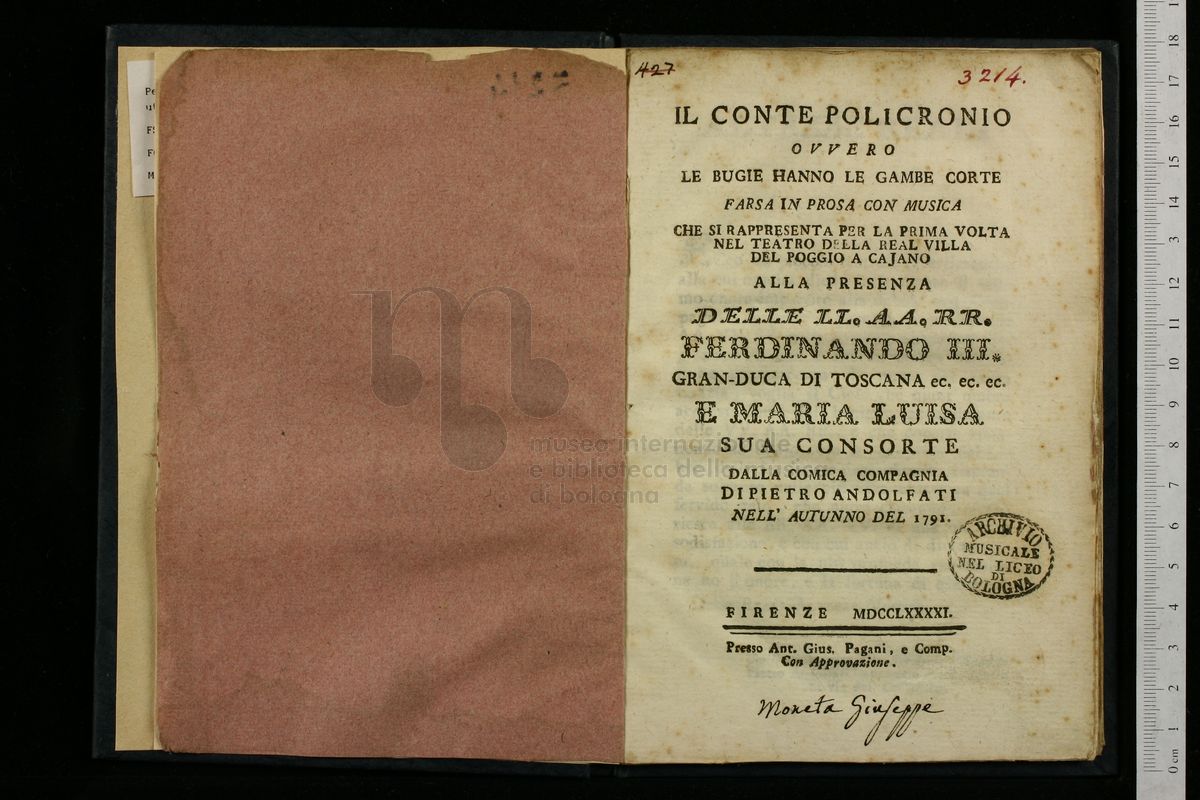 427
3214.
IL CONTE POLICRONIO
OVVERO
LE BUGIE HANNO LE GAMBE CORTE
FARSA IN PROSA CON MUSICA
CHE SI RAPPRESENTA PER LA PRIMA VOLTA
NEL TEATRO DELLA REAL VILLA
DEL POGGIO A CAJANO
ALLA PRESENZA
DELLE LL. AA. RR.
FERDINANDO III.
GRAN-DUCA DI TOSCANA ec. ec. ec.
E MARIA LUISA
SUA CONSORTE
DALLA COMICA COMPAGNIA
DI PIETRO ANDOLFATI
NELL' AUTUNNO DEL 1791.
ARCHIVIO
MUSICALE
NEL LICEO
DI
BOLOGNA
FIRENZE MDCCLXXXXI.
Presso Ant. Gius. Pagani, e Comp.
Con Approvazione.
Moneta Giuseppe
museo internazionale
e biblioteca della musica
di bologna
0 cm 1 2 3 4 5 6 7 8 9 10 11 12 3 14 15 16 17 18